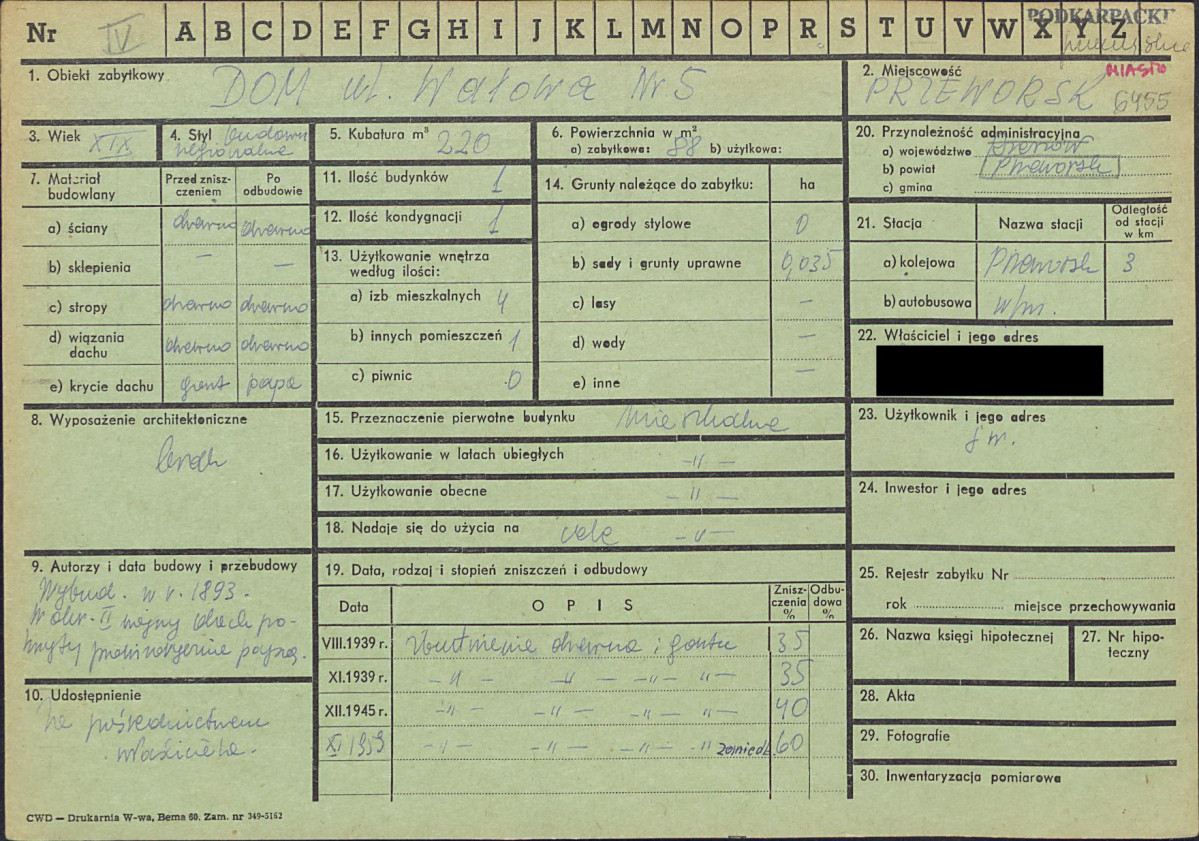 Nr IV A B C D E F G H I J K L M N O P R S T U V W X Y Z
PODKARPACKIE
1. Obiekt zabytkowy
DOM ul. Wałowa Nr 5
2. Miejscowość
MIASTO
PRZEWORSK 6455
3. Wiek XIX
4. Styl budown.
regionalne
5. Kubatura m³ 220
6. Powierzchnia w m²
a) zabytkowa: 88 b) użytkowa:
20. Przynależność administracyjna
a) województwo Rzeszów
b) powiat Przeworsk
c) gmina
7. Materiał
budowlany
Przed znisz-
czeniem
Po
odbudowie
a) ściany drewno drewno
b) sklepienia — —
c) stropy drewno drewno
d) wiązania
dachu drewno drewno
e) krycie dachu gont papa
11. Ilość budynków 1
12. Ilość kondygnacji 1
13. Użytkowanie wnętrza
według ilości:
a) izb mieszkalnych 4
b) innych pomieszczeń 1
c) piwnic 0
14. Grunty należące do zabytku: ha
a) ogrody stylowe 0
b) sady i grunty uprawne 0,035
c) lasy —
d) wody —
e) inne —
21. Stacja Nazwa stacji Odległość
od stacji
w km
a) kolejowa Przeworsk 3
b) autobusowa w/m.
22. Właściciel i jego adres
8. Wyposażenie architektoniczne
brak
15. Przeznaczenie pierwotne budynku mieszkalne
16. Użytkowanie w latach ubiegłych -"-
17. Użytkowanie obecne -"-
18. Nadaje się do użycia na cele -"-
23. Użytkownik i jego adres
j.w.
24. Inwestor i jego adres
9. Autorzy i data budowy i przebudowy
Wybud. w r. 1893.
W okr. II wojny dach po-
kryty prowizorycznie papą.
10. Udostępnienie
Za pośrednictwem
właściciela.
19. Data, rodzaj i stopień zniszczeń i odbudowy
Data OPIS Znisz-
czenia
%
Odbu-
dowa
%
VIII.1939 r. Zbutwienie drewna i gontu 35
XI.1939 r. -"- -"- -"- "- 35
XII.1945 r. -"- -"- -"- "- 40
XI 1959 -"- -"- -"- " zaniedb. 60
25. Rejestr zabytku Nr
rok miejsce przechowywania
26. Nazwa księgi hipotecznej
27. Nr hipo-
teczny
28. Akta
29. Fotografie
30. Inwentaryzacja pomiarowa
CWD — Drukarnia W-wa, Bema 60. Zam. nr 349-5162